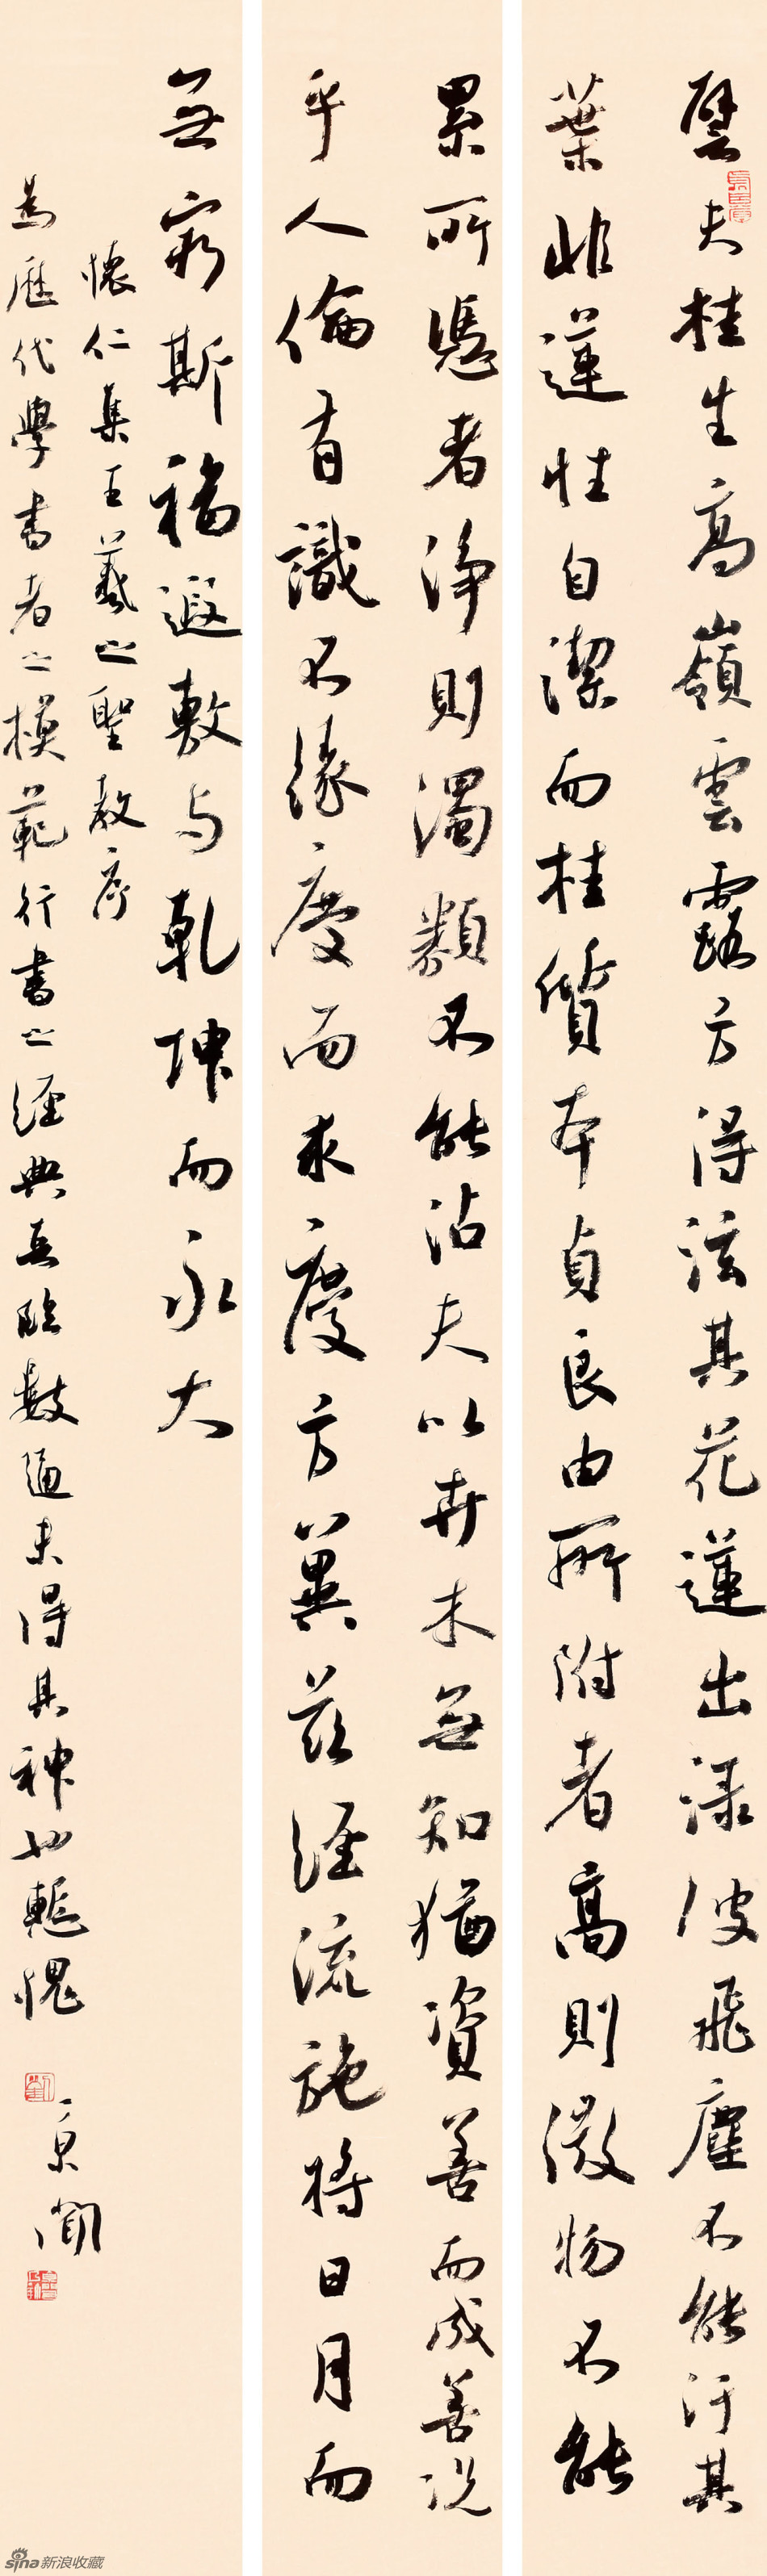 譬夫桂生高嶺雲露方得泫其花蓮出淥波飛塵不能汙其
葉非蓮性自潔而桂質本貞良由所附者高則微物不能
累所憑者淨則濁類不能沾夫以卉木無知猶資善而成善況
乎人倫有識不緣慶而求慶方冀茲經流施將日月而
無窮斯福遐敷与乾坤而永大
懷仁集王羲之聖教序
為歷代學書者之模範行書之經典吾臨數過未得其神也輒愧
京聞
sina新浪收藏